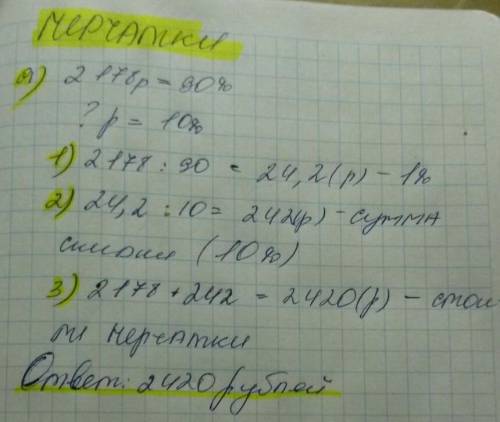 Перчатки
а) 2178р = 90%
? р = 10%
1) 2178 : 90 = 24,2(р) - 1%
2) 24,2 : 10 = 242(р) - сумма
скидки (10%)
3) 2178 + 242 = 2420(р) - стои
ли перчатки
Ответ: 2420 рублей